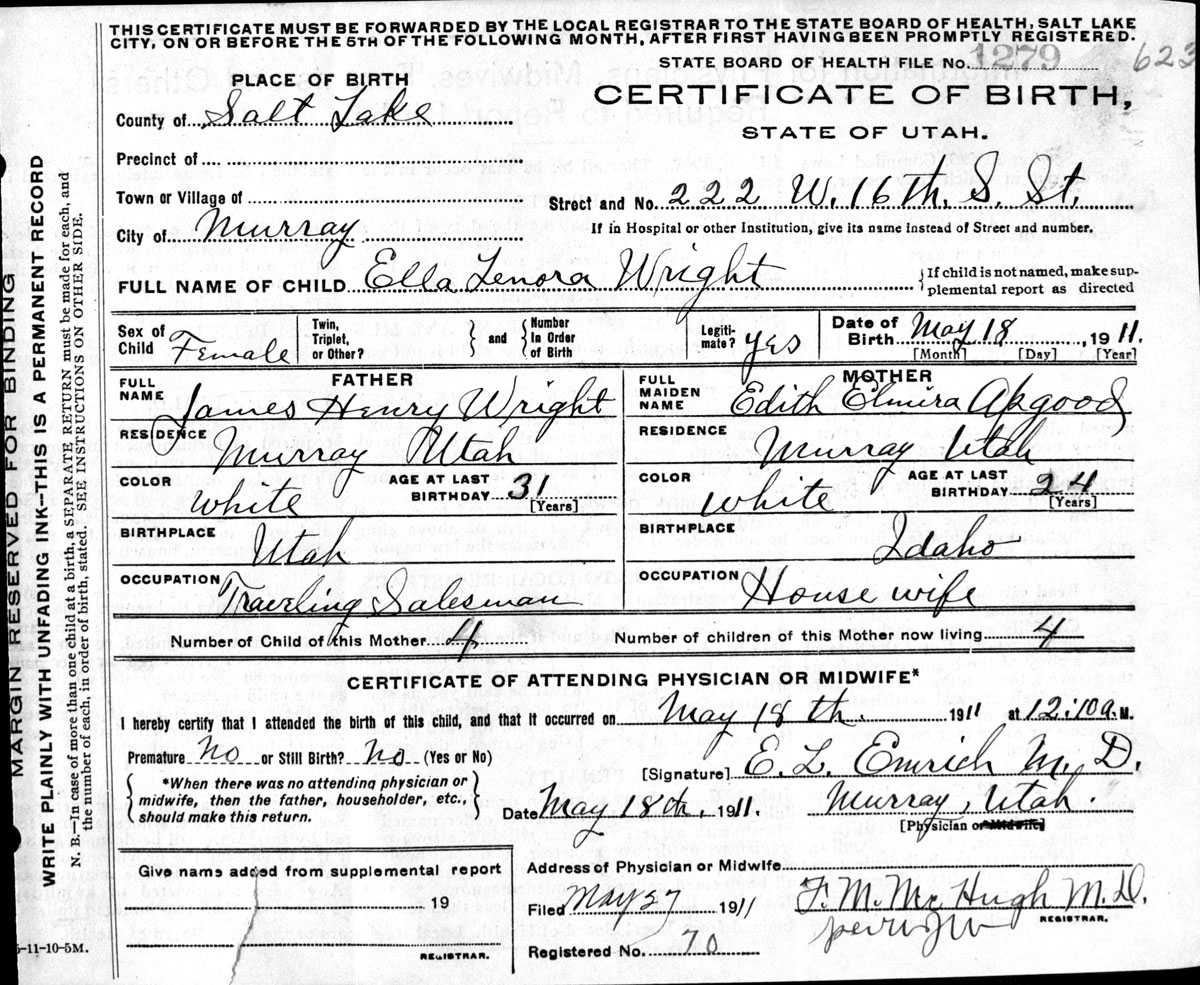 THIS CERTIFICATE MUST BE FORWARDED BY THE LOCAL REGISTRAR TO THE STATE BOARD OF HEALTH, SALT LAKE
CITY, ON OR BEFORE THE 5TH OF THE FOLLOWING MONTH, AFTER FIRST HAVING BEEN PROMPTLY REGISTERED.
STATE BOARD OF HEALTH FILE No. 1279 623
PLACE OF BIRTH
CERTIFICATE OF BIRTH,
STATE OF UTAH.
County of Salt Lake
Precinct of
Town or Village of
Street and No. 222 W. 16th. S. St.
City of Murray
If in Hospital or other Institution, give its name instead of Street and number.
FULL NAME OF CHILD Ella Lenora Wright
{If child is not named, make sup-
plemental report as directed
Sex of Child Female
Twin, Triplet, or Other? } and { Number In Order of Birth
Legiti-mate? yes
Date of Birth May 18, 1911.
[Month] [Day] [Year]
FATHER
FULL NAME James Henry Wright
RESIDENCE Murray Utah
COLOR White
AGE AT LAST BIRTHDAY 31
[Years]
BIRTHPLACE Utah
OCCUPATION Traveling Salesman
MOTHER
FULL MAIDEN NAME Edith Elmira Apgood
RESIDENCE Murray Utah
COLOR White
AGE AT LAST BIRTHDAY 24
[Years]
BIRTHPLACE Idaho
OCCUPATION House wife
Number of Child of this Mother 4
Number of children of this Mother now living 4
CERTIFICATE OF ATTENDING PHYSICIAN OR MIDWIFE*
I hereby certify that I attended the birth of this child, and that it occurred on May 18th, 1911 at 12:10 a. M.
Premature No or Still Birth? No (Yes or No)
[Signature] E. L. Emrich M. D.
*When there was no attending physician or
midwife, then the father, householder, etc.,
should make this return.
Date May 18th, 1911.
Murray, Utah.
[Physician or Midwife]
Give name added from supplemental report
19
REGISTRAR.
Address of Physician or Midwife
Filed May 27 1911
F. M. McHugh M.D.
REGISTRAR.
per
Registered No. 70
5-11-10-5M.
MARGIN RESERVED FOR BINDING
WRITE PLAINLY WITH UNFADING INK—THIS IS A PERMANENT RECORD
N. B.—In case of more than one child at a birth, a SEPARATE RETURN must be made for each, and
the number of each, in order of birth, stated. SEE INSTRUCTIONS ON OTHER SIDE.